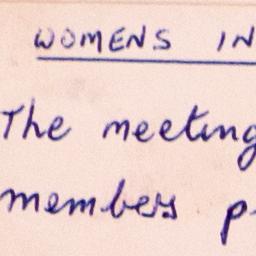 WOMENS IN
The meeting
members p